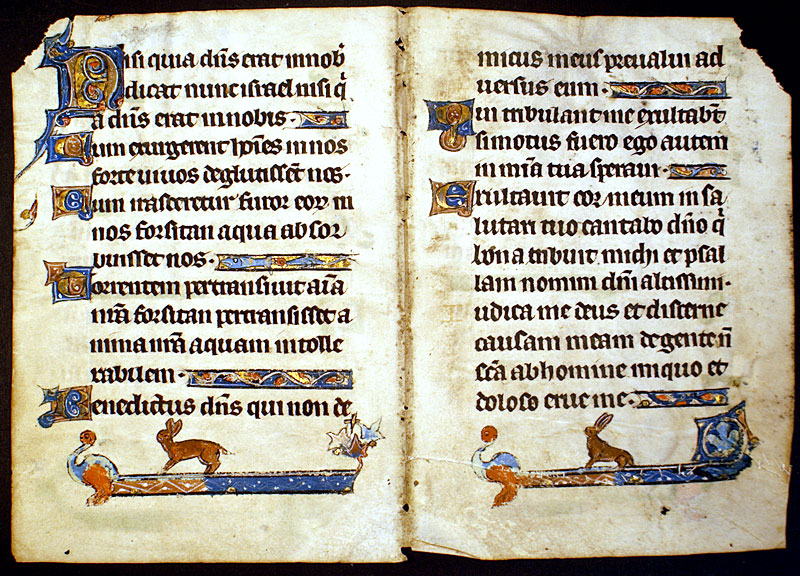 Nisi quia dñs erat in nob̄
dicat nunc israel nisi q̄
a dñs erat in nobis·
Cum exurgerent hōies in nos
forte uiuos deglutissent nos·
Cum irasceretur furor eoꝝ in
nos forsitan aqua absor
buisset nos·
Torrentem pertransiuit aīa
nr̄a forsitan pertransisset a
nima nr̄a aquam intolle
rabilem·
Benedictus dñs qui non de
micus meus preualui ad
uersus eum·
Qui tribulant me exultabt̄
si motus fuero ego autem
in mīa tua speraui·
Exultauit cor meum in sa
lutari tuo cantabo dño q̄
bona tribuit michi et psal
lam nomini dñi altissimi·
udica me deus et discerne
causam meam de gente ñ
scā ab homine iniquo et
doloso erue me·